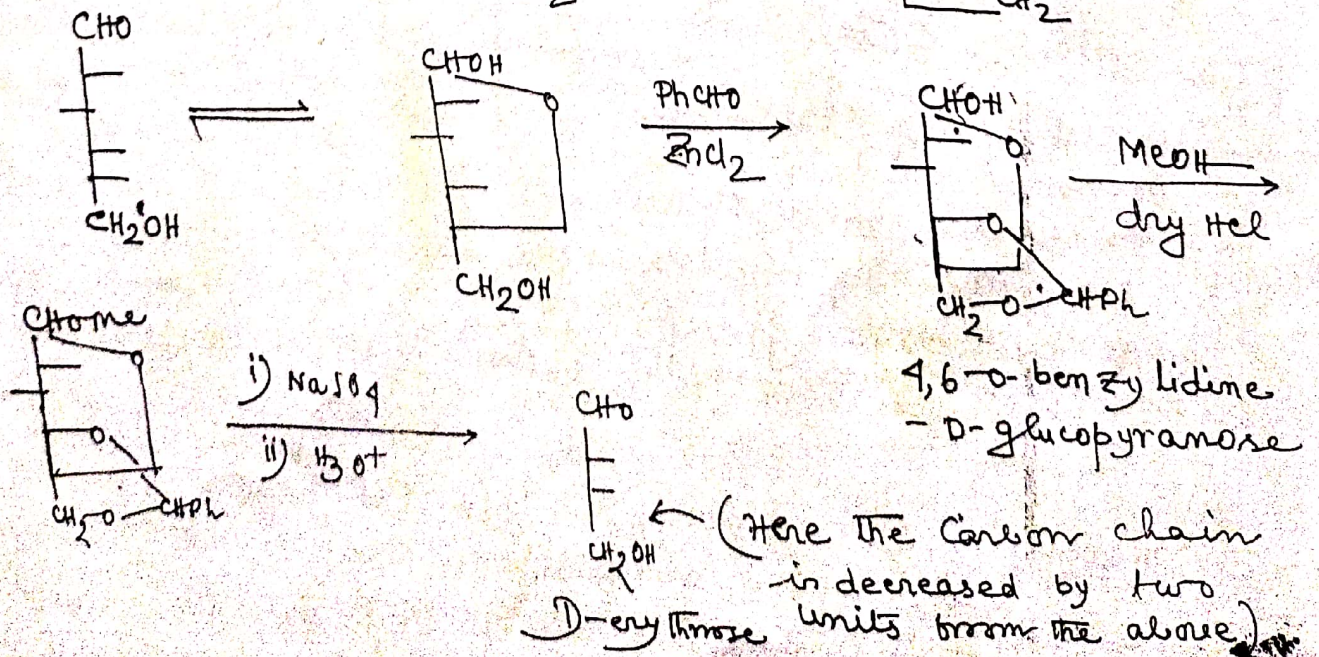 CH2
CHO
CH2OH
CHOH
O
CH2OH
PhCHO
ZnCl2
CHOH
O
O
CH2-O-CHPh
MeOH
dry HCl
4,6-O-benzylidine
- D-glucopyranose
CHOMe
O
O
CH2-O-CHPh
i) NaSO4
ii) H3O+
CHO
CH2OH
D-erythrose
(Here the Carbon chain
is decreased by two
units from the above)